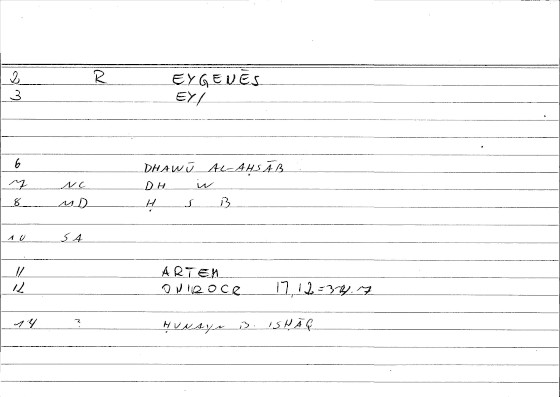 2 R EYGENĒS
3 EY/
6 DHAWŪ AL-AḤSĀB
7 NC DH W
8 MD Ḥ S B
10 SA
11 ARTEM
12 ONIROCR 17,12=34.7
14 ? ḤUNAYN B. ISḤĀQ